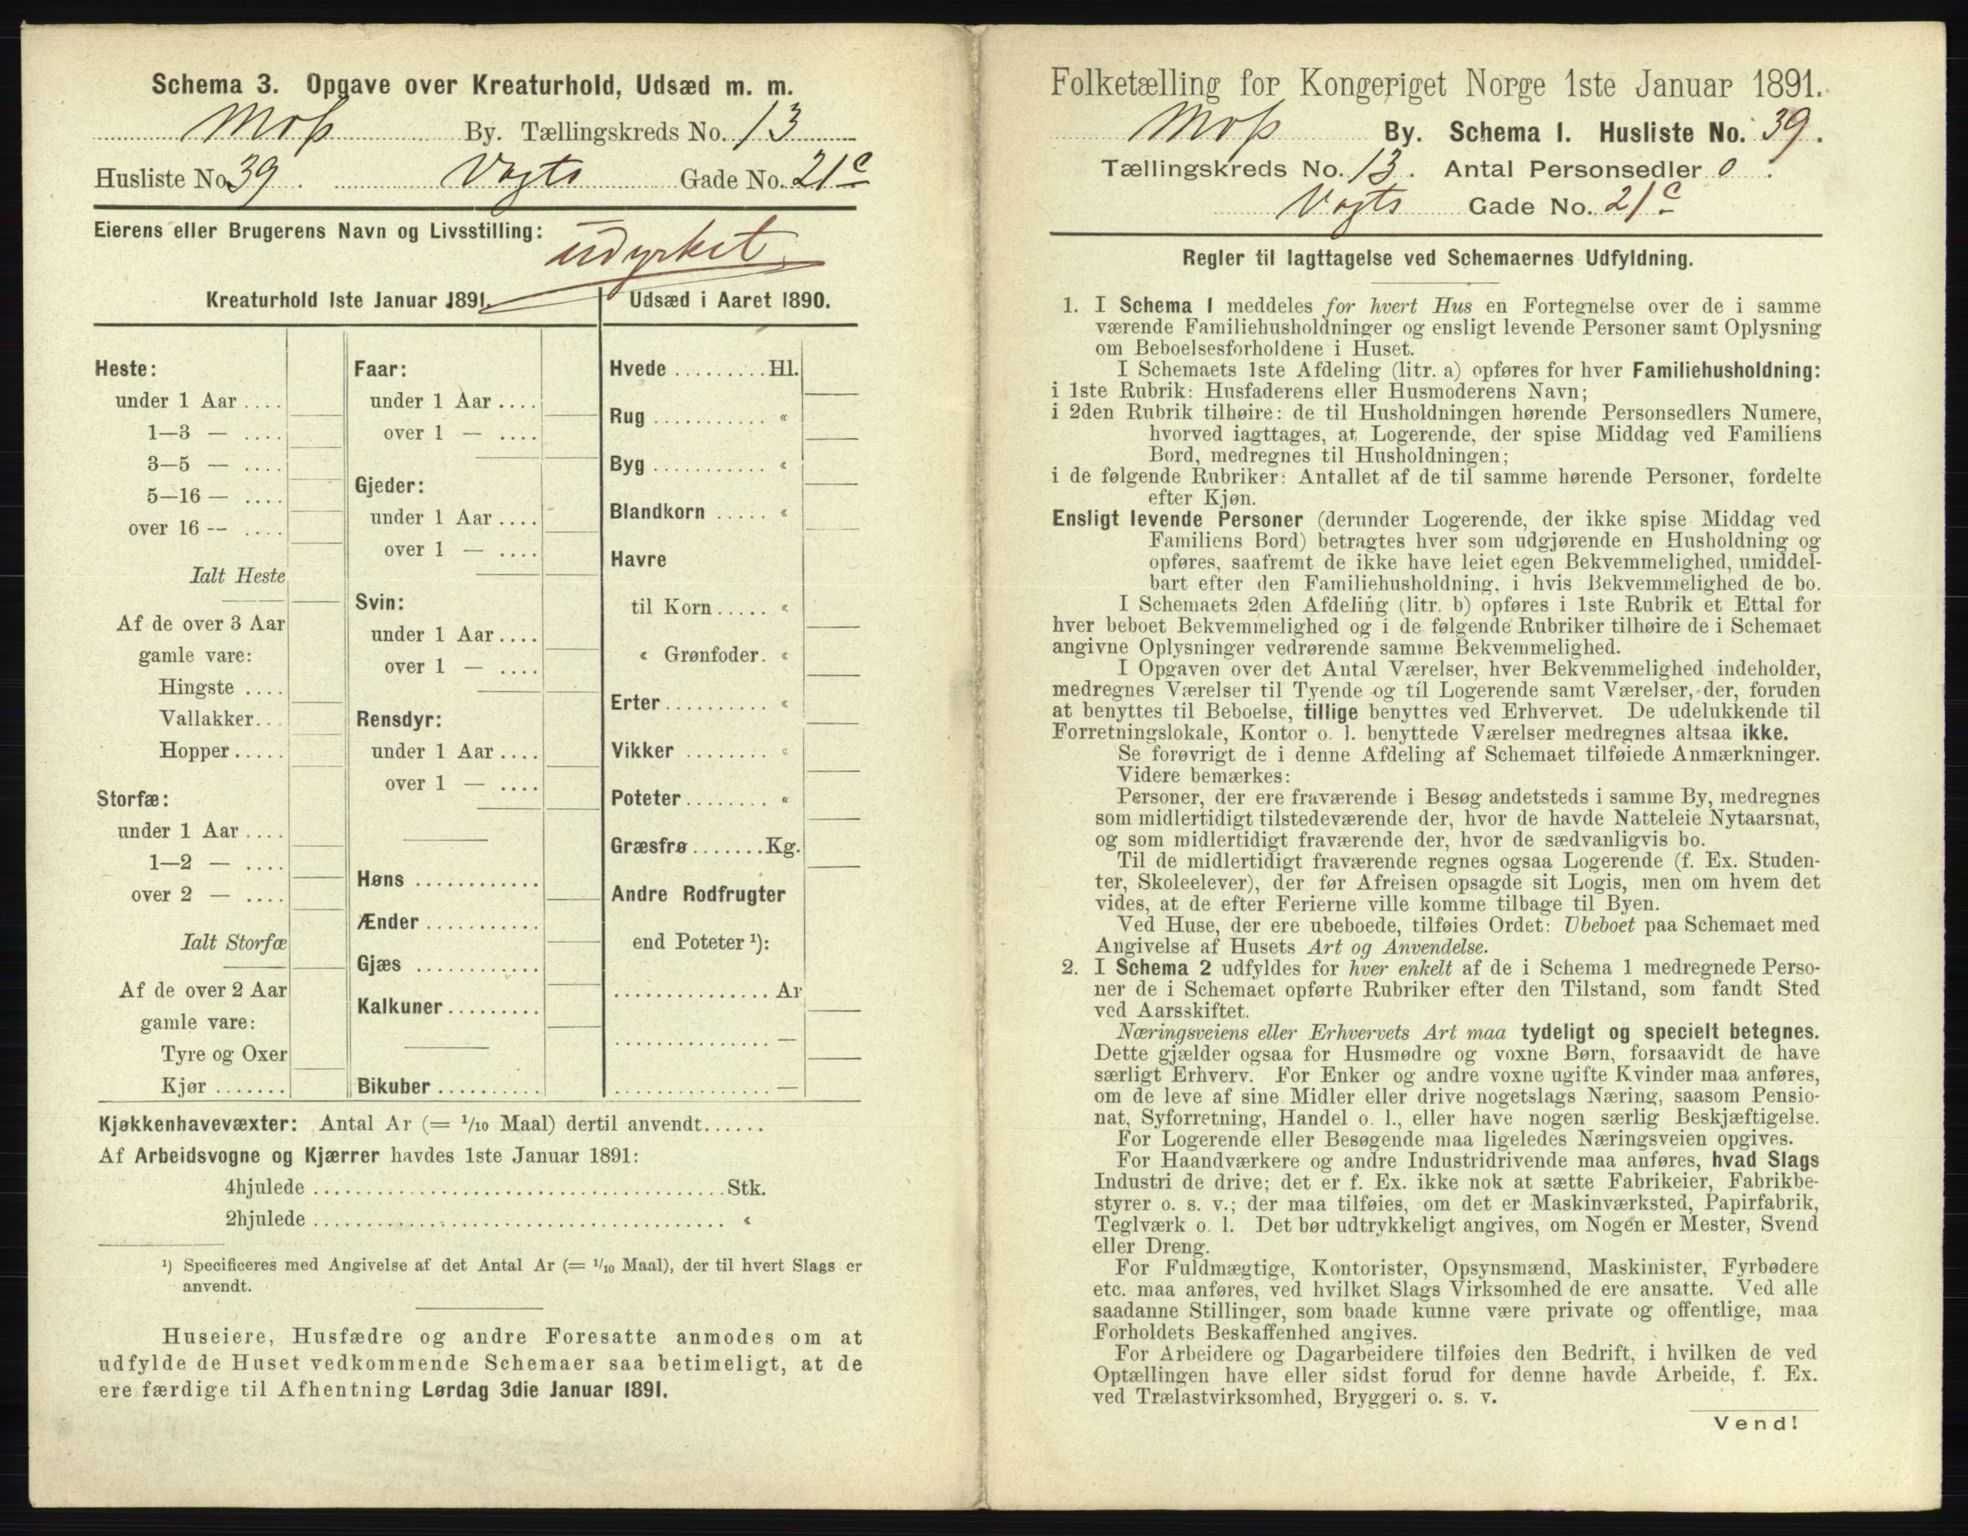 Schema 3. Opgave over Kreaturhold, Udsæd m. m.
Moss By. Tællingskreds No. 13
Husliste No. 39. Vogts Gade No. 21c
Eierens eller Brugerens Navn og Livsstilling: udyrket
Kreaturhold 1ste Januar 1891.
Heste:
under 1 Aar ....
1—3 — ....
3—5 — ....
5—16 — ....
over 16 -- ....
Ialt Heste
Af de over 3 Aar
gamle vare:
Hingste ....
Vallakker...
Hopper .....
Storfæ:
under 1 Aar ....
1—2 — ....
over 2 — ....
Ialt Storfæ
Af de over 2 Aar
gamle vare:
Tyre og Oxer
Kjør .......
Faar:
under 1 Aar ....
over 1 — ....
Gjeder:
under 1 Aar ....
over 1 — ....
Svin:
under 1 Aar ....
over 1 — ....
Rensdyr:
under 1 Aar ....
over 1 — ....
Høns ............
Ænder ...........
Gjæs ............
Kalkuner .........
Bikuber ..........
Udsæd i Aaret 1890.
Hvede ......... Hl.
Rug ........... «
Byg ........... «
Blandkorn ..... «
Havre
til Korn ..... «
« Grønfoder. «
Erter .......... «
Vikker ........ «
Poteter ........ «
Græsfrø ....... Kg.
Andre Rodfrugter
end Poteter ¹):
............... Ar
............... —
............... —
Kjøkkenhavevæxter: Antal Ar (= 1/10 Maal) dertil anvendt......
Af Arbeidsvogne og Kjærrer havdes 1ste Januar 1891:
4hjulede ........................................ Stk.
2hjulede ........................................ «
¹) Specificeres med Angivelse af det Antal Ar (= 1/10 Maal), der til hvert Slags er
anvendt.
Huseiere, Husfædre og andre Foresatte anmodes om at
udfylde de Huset vedkommende Schemaer saa betimeligt, at de
ere færdige til Afhentning Lørdag 3die Januar 1891.
Folketælling for Kongeriget Norge 1ste Januar 1891.
Moss By. Schema 1. Husliste No. 39.
Tællingskreds No. 13. Antal Personsedler 0.
Vogts Gade No. 21c
Regler til Iagttagelse ved Schemaernes Udfyldning.
1. I Schema 1 meddeles for hvert Hus en Fortegnelse over de i samme
værende Familiehusholdninger og ensligt levende Personer samt Oplysning
om Beboelsesforholdene i Huset.
I Schemaets 1ste Afdeling (litr. a) opføres for hver Familiehusholdning:
i 1ste Rubrik: Husfaderens eller Husmoderens Navn;
i 2den Rubrik tilhøire: de til Husholdningen hørende Personsedlers Numere,
hvorved iagttages, at Logerende, der spise Middag ved Familiens
Bord, medregnes til Husholdningen;
i de følgende Rubriker: Antallet af de til samme hørende Personer, fordelte
efter Kjøn.
Ensligt levende Personer (derunder Logerende, der ikke spise Middag ved
Familiens Bord) betragtes hver som udgjørende en Husholdning og
opføres, saafremt de ikke have leiet egen Bekvemmelighed, umiddel-
bart efter den Familiehusholdning, i hvis Bekvemmelighed de bo.
I Schemaets 2den Afdeling (litr. b) opføres i 1ste Rubrik et Ettal for
hver beboet Bekvemmelighed og i de følgende Rubriker tilhøire de i Schemaet
angivne Oplysninger vedrørende samme Bekvemmelighed.
I Opgaven over det Antal Værelser, hver Bekvemmelighed indeholder,
medregnes Værelser til Tyende og til Logerende samt Værelser, der, foruden
at benyttes til Beboelse, tillige benyttes ved Erhvervet. De udelukkende til
Forretningslokale, Kontor o. l. benyttede Værelser medregnes altsaa ikke.
Se forøvrigt de i denne Afdeling af Schemaet tilføiede Anmærkninger.
Videre bemærkes:
Personer, der ere fraværende i Besøg andetsteds i samme By, medregnes
som midlertidigt tilstedeværende der, hvor de havde Natteleie Nytaarsnat,
og som midlertidigt fraværende der, hvor de sædvanligvis bo.
Til de midlertidigt fraværende regnes ogsaa Logerende (f. Ex. Studen-
ter, Skoleelever), der før Afreisen opsagde sit Logis, men om hvem det
vides, at de efter Ferierne ville komme tilbage til Byen.
Ved Huse, der ere ubeboede, tilføies Ordet: Ubeboet paa Schemaet med
Angivelse af Husets Art og Anvendelse.
2. I Schema 2 udfyldes for hver enkelt af de i Schema 1 medregnede Perso-
ner de i Schemaet opførte Rubriker efter den Tilstand, som fandt Sted
ved Aarsskiftet.
Næringsveiens eller Erhvervets Art maa tydeligt og specielt betegnes.
Dette gjælder ogsaa for Husmødre og voxne Børn, forsaavidt de have
særligt Erhverv. For Enker og andre voxne ugifte Kvinder maa anføres,
om de leve af sine Midler eller drive nogetslags Næring, saasom Pensio-
nat, Syforretning, Handel o. l., eller have nogen særlig Beskjæftigelse.
For Logerende eller Besøgende maa ligeledes Næringsveien opgives.
For Haandværkere og andre Industridrivende maa anføres, hvad Slags
Industri de drive; det er f. Ex. ikke nok at sætte Fabrikeier, Fabrikbe-
styrer o. s. v.; der maa tilføies, om det er Maskinværksted, Papirfabrik,
Teglværk o. l. Det bør udtrykkeligt angives, om Nogen er Mester, Svend
eller Dreng.
For Fuldmægtige, Kontorister, Opsynsmænd, Maskinister, Fyrbødere
etc. maa anføres, ved hvilket Slags Virksomhed de ere ansatte. Ved alle
saadanne Stillinger, som baade kunne være private og offentlige, maa
Forholdets Beskaffenhed angives.
For Arbeidere og Dagarbeidere tilføies den Bedrift, i hvilken de ved
Optællingen have eller sidst forud for denne havde Arbeide, f. Ex.
ved Trælastvirksomhed, Bryggeri o. s. v.
Vend!